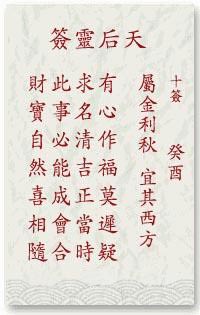 天后靈簽
十簽　癸酉
屬金利秋　宜其西方
有心作福莫遲疑
求名清吉正當時
此事必能成會合
財寶自然喜相隨